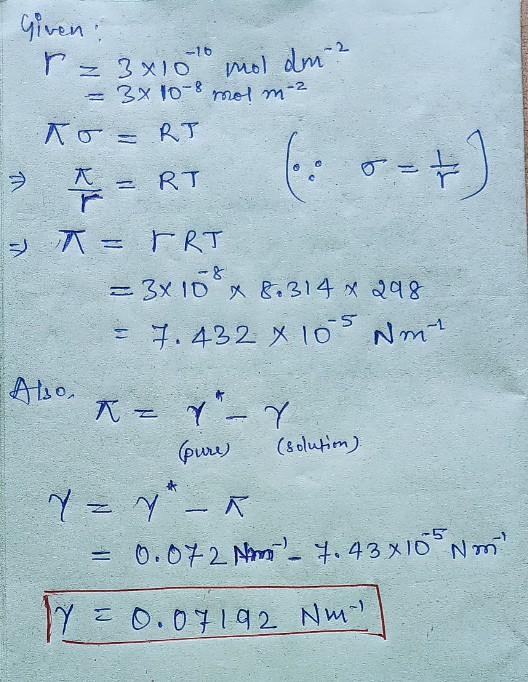 Given:
r = 3×10⁻¹⁰ mol dm⁻²
= 3×10⁻⁸ mol m⁻²
πσ = RT
⇒ π/r = RT (∵ σ = 1/r)
⇒ π = rRT
= 3×10⁻⁸ × 8.314 × 298
= 7.432 × 10⁻⁵ Nm⁻¹
Also,
π = γ* - γ
(pure) (solution)
γ = γ* - π
= 0.072 Nm⁻¹ - 7.43×10⁻⁵ Nm⁻¹
γ = 0.07192 Nm⁻¹